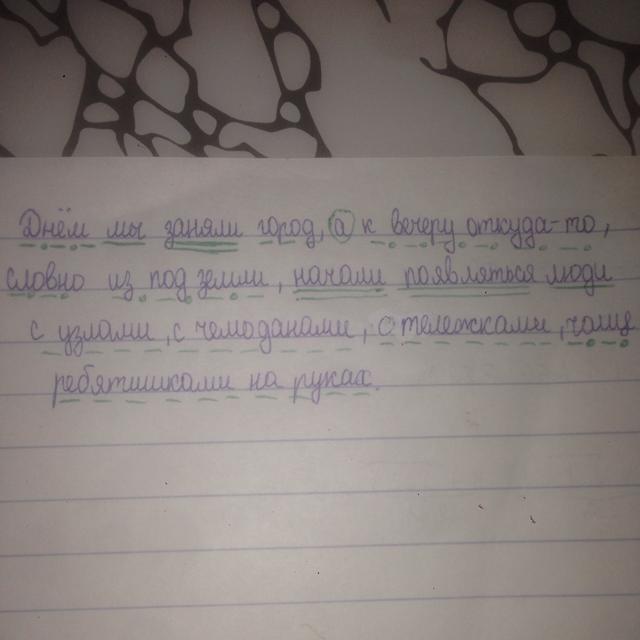 Днём мы заняли город, а к вечеру откуда-то,
словно из под земли, начали появляться люди
с узлами, с чемоданами, с тележками, чаще
ребятишками на руках.